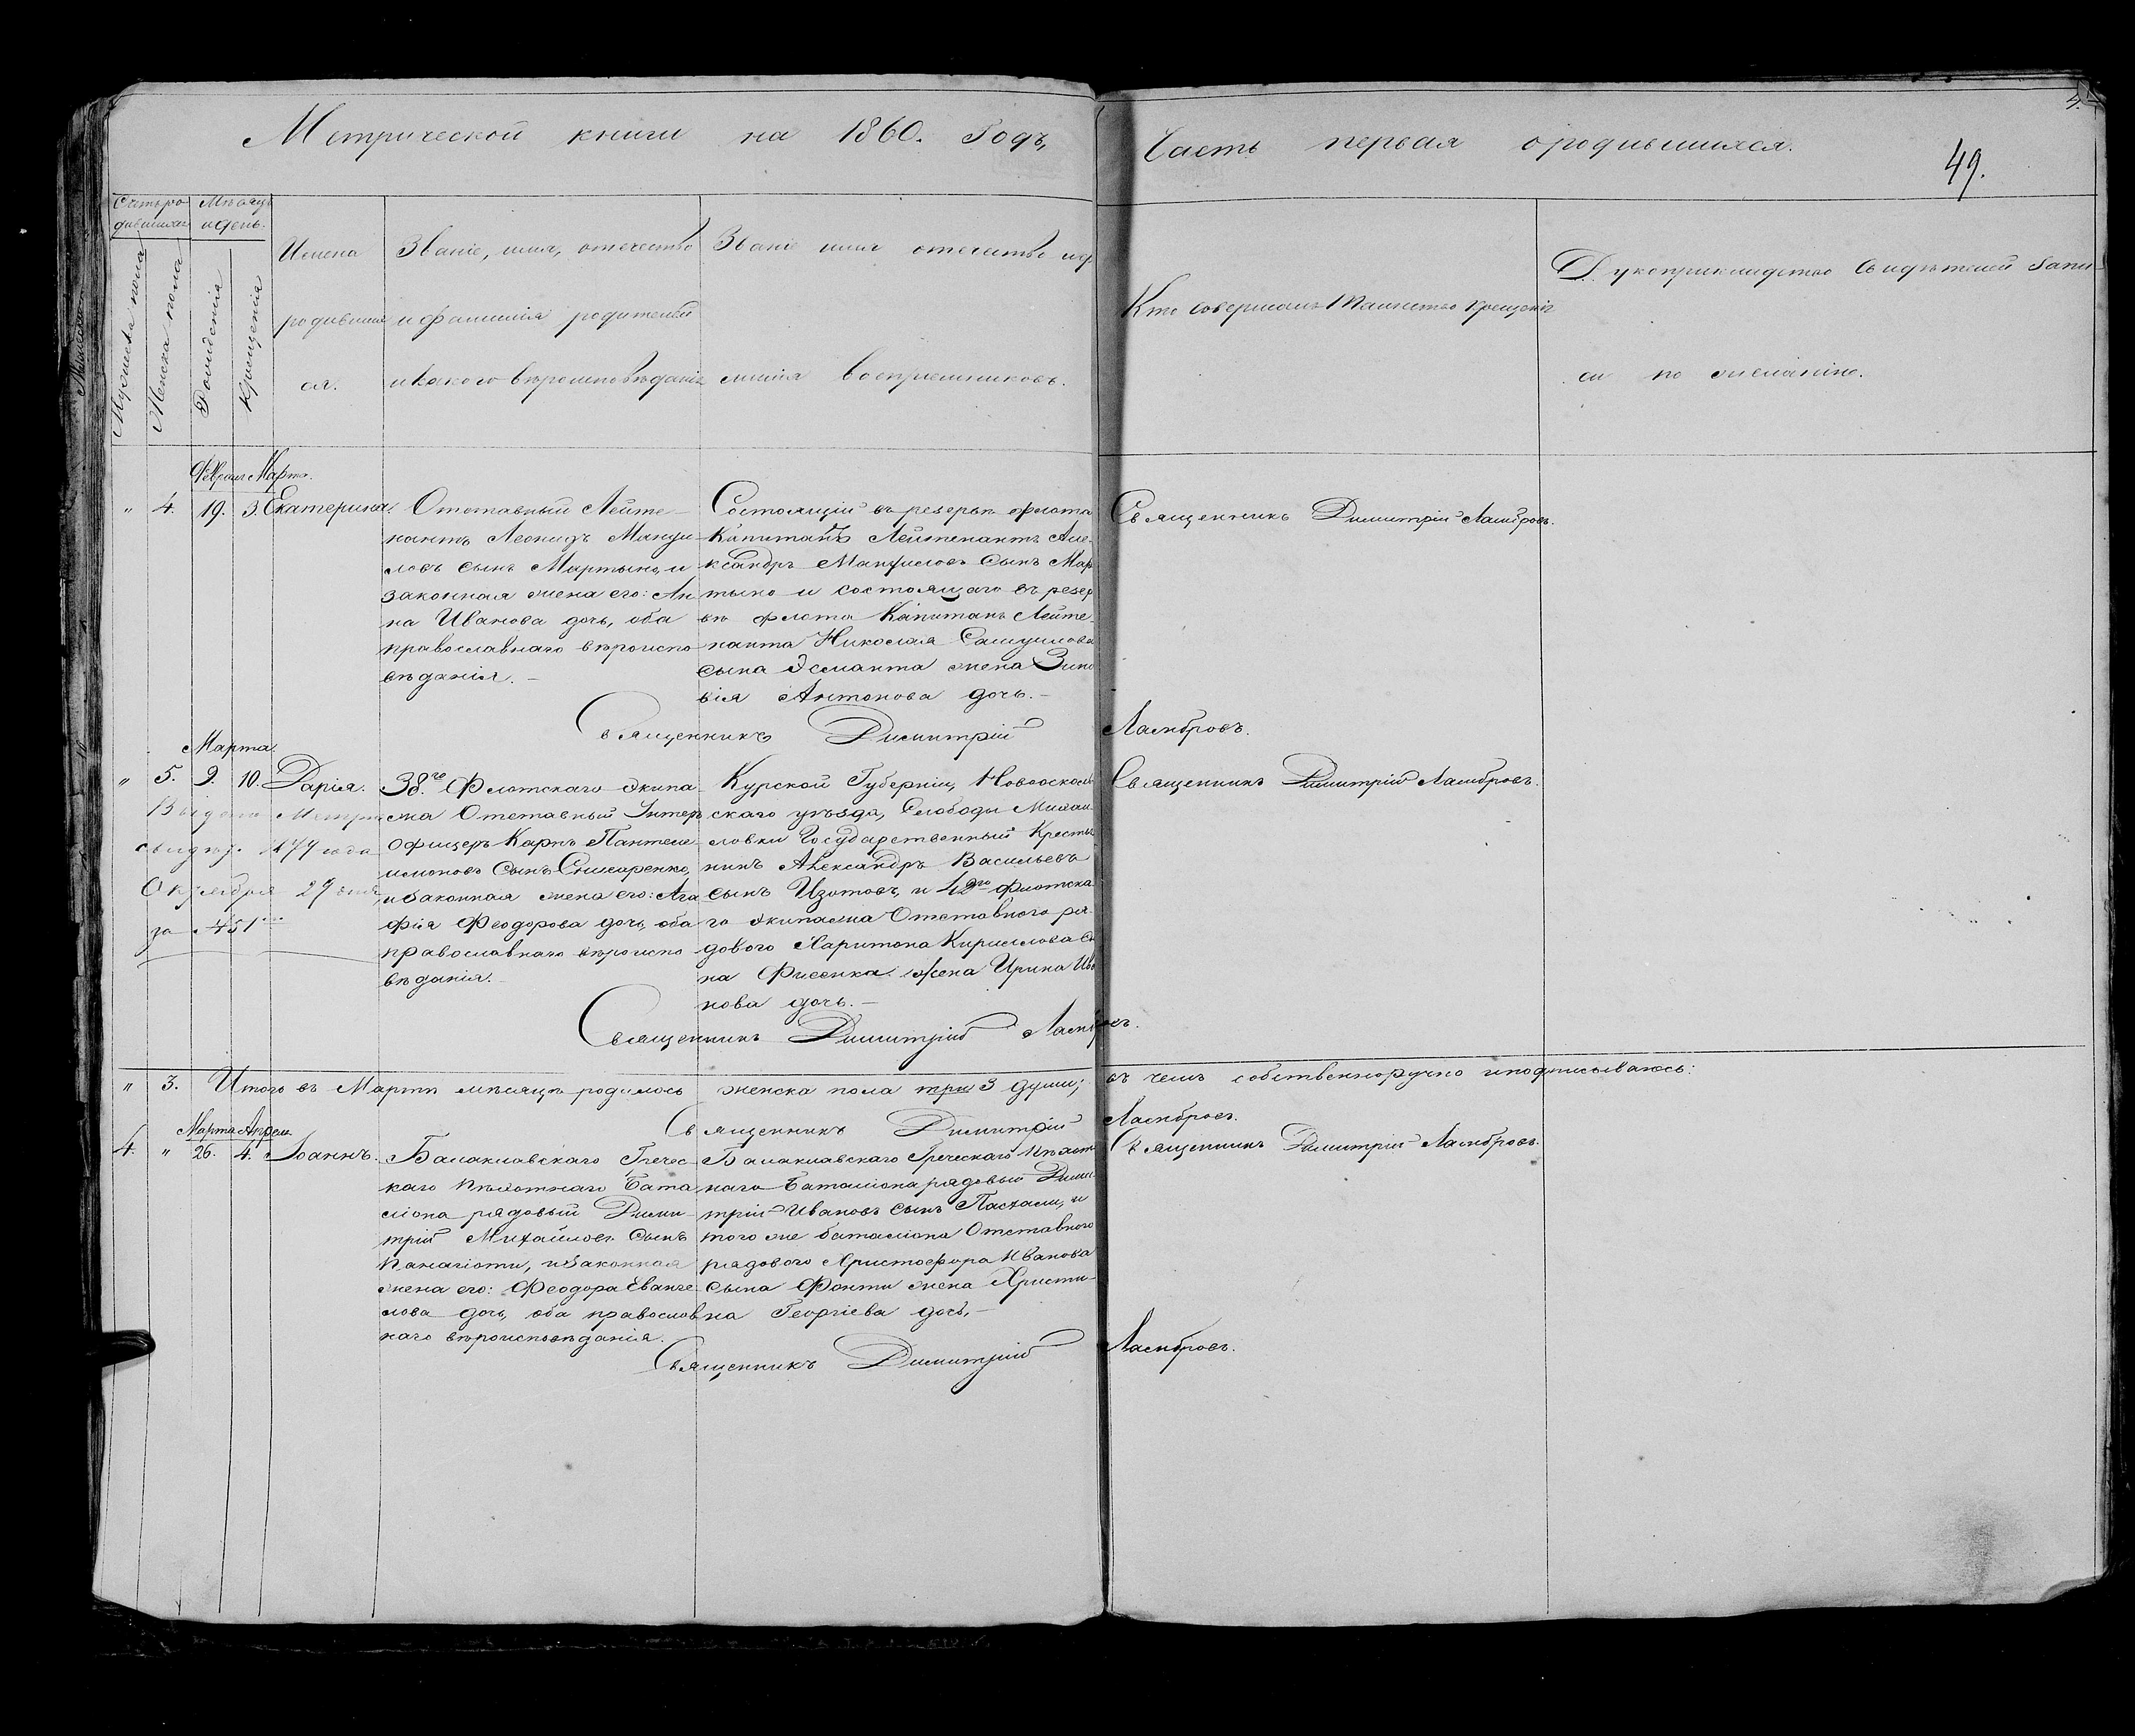 Метрической книги на 1860. Годъ,
Часть первая о родившихся.
49.
Счетъ ро
дившихся
Мѣсяцъ
и день.
Мужеска пола
Женска пола
Рожденія
Крещенія
Имена
родивших
ся.
Званіе, имя, отечество
и фамилія родителей
и какого вѣроисповѣданія
Званіе имя отечество и фа
милія воспріемниковъ.
Кто совершалъ Таинство Крещенія
Рукоприкладство свидѣтелей запи
си по желанію.
Февраля Марта.
" 4. 19. 3. Екатерина.
Отставный Лейте-
нантъ Леонидъ Мануи
ловъ сынъ Мартыно, и
законная жена его: Ан
на Иванова дочь, оба
православнаго вѣроиспо
вѣданія. -
Состоящій въ резервѣ флота
Капитанъ Лейтенантъ Але-
ксандръ Мануиловъ сынъ Мар
тыно и состоящаго въ резер
вѣ флота Капитанъ Лейте-
нанта Николая Самуилова
сына Эсманта жена Зино
вія Антонова дочь. -
Священникъ Димитрій Ламбровъ.
Священникъ Димитрій Ламбровъ.
Марта
" 5. 9. 10. Дарія.
Выдано Метри
свидѣт. 1879 года
Октября 29 дня
за 451
38.го Флотскаго Экипа
жа Отставный Унтеръ
Офицеръ Карпъ Пантеле
имоновъ сынъ
и законная жена его: Ага
фія Феодорова дочь, оба
православнаго вѣроиспо
вѣданія. -
Курской Губерніи, Новооскол
скаго уѣзда, Слободы Михаи
ловки Государственный Крестья
нинъ Александръ Васильевъ
сынъ Изотовъ, и 42го флотска
го Экипажа Отставного ря
дового Харитона Кирилова сы
на Фисенка жена Ирина Ива
нова дочь. -
Священникъ Димитрій Ламбровъ.
Священникъ Димитрій Ламбровъ.
" 3. Итого въ Мартѣ мѣсяцѣ родилось женска пола три 3 души; въ чемъ собственноручно и подписываюсь:
Священникъ Димитрій Ламбровъ.
Марта Апреля
4. " 26. 4. Іоаннъ.
Балаклавскаго Гречес
каго пѣхотнаго Бата
ліона рядовый Дими
трій Михайловъ сынъ
Панагіоти, и законная
жена его: Феодора Еванге
лова дочь, оба православ
наго вѣроисповѣданія.
Балаклавскаго Греческаго Пѣхот
наго Баталіона рядовый Дими
трій Ивановъ сынъ Пасхали, и
того же баталіона Отставного
рядового Христофора Иванова
сына Фонти жена Христи
на Георгіева дочь. -
Священникъ Димитрій Ламбровъ.
Священникъ Димитрій Ламбровъ.